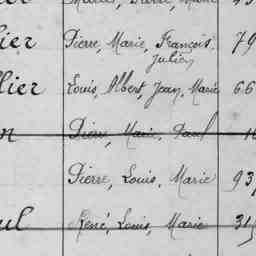 ier Pierre, Marie, François, 79
Julien
llier Louis, Albert, Jean, Marie 66
n Pierre, Marie, Paul
Pierre, Louis, Marie 93
ul René, Louis, Marie 31